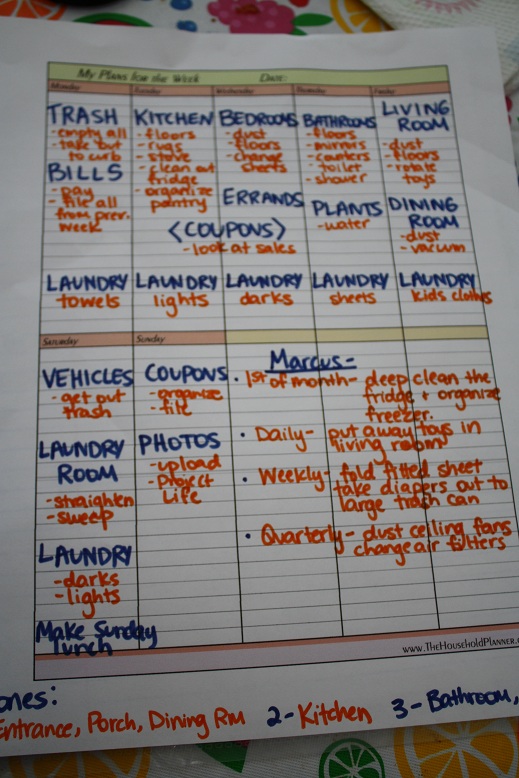 My Plans for the Week Date:
Monday Tuesday Wednesday Thursday Friday
TRASH
- empty all
- take out
to curb
BILLS
- pay
- file all
from prev.
week
LAUNDRY
towels
KITCHEN
- floors
- rugs
- stove
- clean out
fridge
- organize
pantry
<COUPONS>
- look at sales
LAUNDRY
lights
BEDROOMS
- dust
- floors
- change
sheets
ERRANDS
LAUNDRY
darks
BATHROOMS
- floors
- mirrors
- counters
- toilet
- shower
PLANTS
- water
LAUNDRY
sheets
LIVING
ROOM
- dust
- floors
- rotate
toys
DINING
ROOM
- dust
- vacuum
LAUNDRY
kids clothes
Saturday Sunday
VEHICLES
- get out
trash
LAUNDRY
ROOM
- straighten
- sweep
LAUNDRY
- darks
- lights
Make Sunday
lunch
COUPONS
- organize
- file
PHOTOS
- upload
- Project
Life
Marcus-
• 1st of month- deep clean the
fridge + organize
freezer.
• Daily- put away toys in
living room
• Weekly- fold fitted sheet
take diapers out to
large trash can
• Quarterly- dust ceiling fans
change air filters
www.TheHouseholdPlanner.
ones:
Entrance, Porch, Dining Rm 2- Kitchen 3- Bathroom,